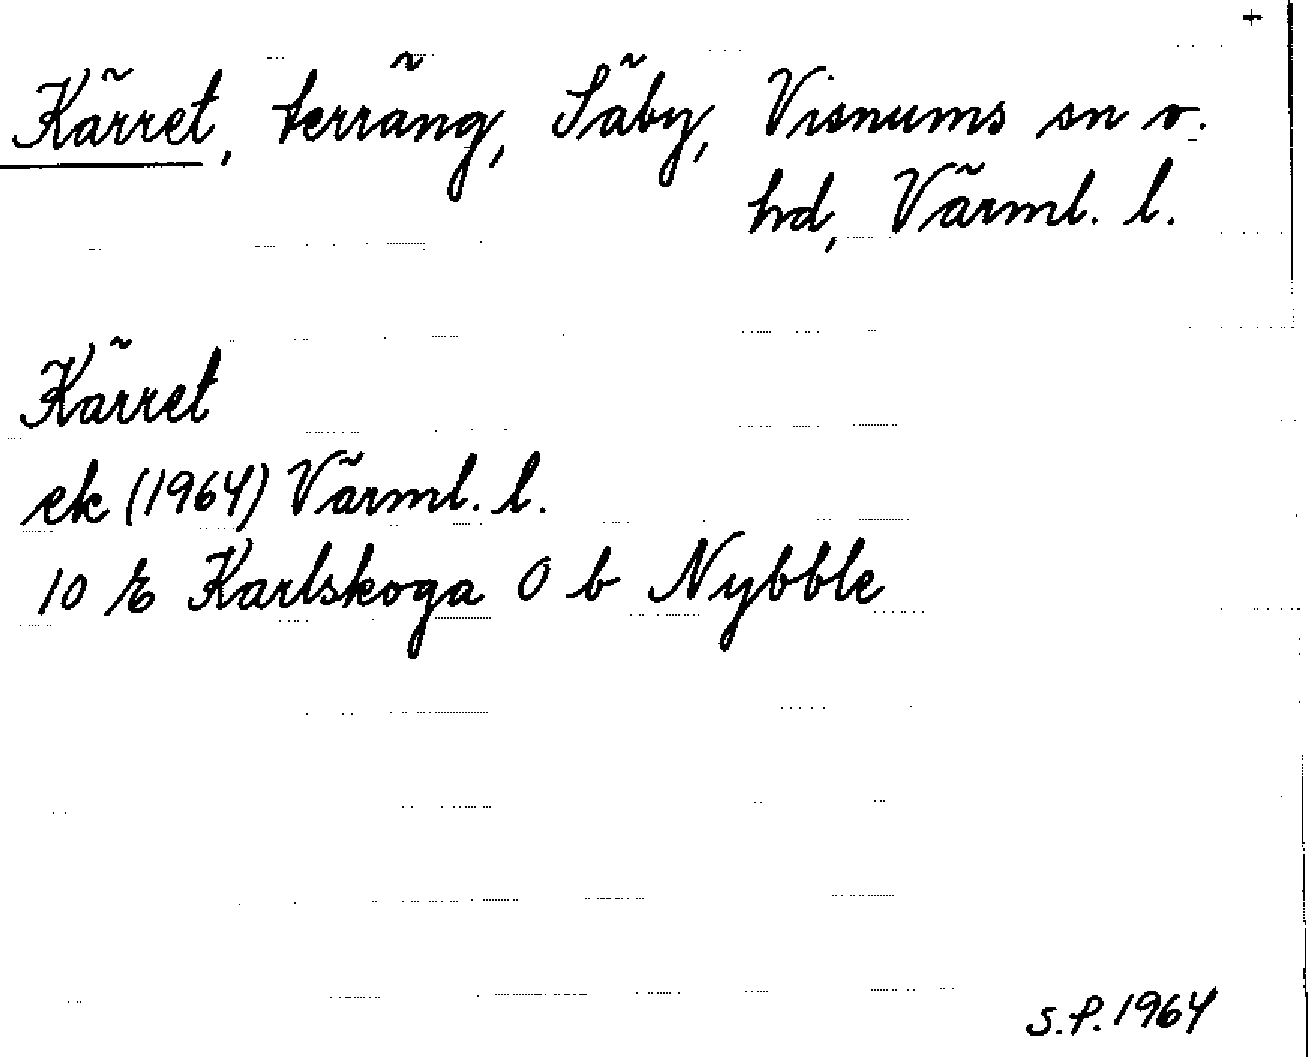 +
Kärret, terräng, Säby, Visnums sn o.
hd, Värml. l.
Kärret
ek (1964) Värml. l.
10 E Karlskoga 0 b Nybble
S.P. 1964